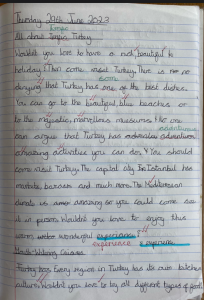 Thursday 29th June 2023
Inspire
All about Turkey
Wouldn't you love to have a rich, beautiful
holiday? Then come visit Turkey. There is no
some
denying that Turkey has one of the best dishes.
You can go to the beautiful blue beaches or
to the majestic, marvellous museums. No one
adventure
can argue that Turkey has
amazing activities you can do. You should
come visit Turkey. The capital city Istanbul has
markets, bazaars and much more. The Mediterranean
climate is amazing so you could come see
it in person. Wouldn't you love to enjoy this
warm wonderful experience?
experience experience
Every region in Turkey has its own
culture. Wouldn't you love to try all different types of food